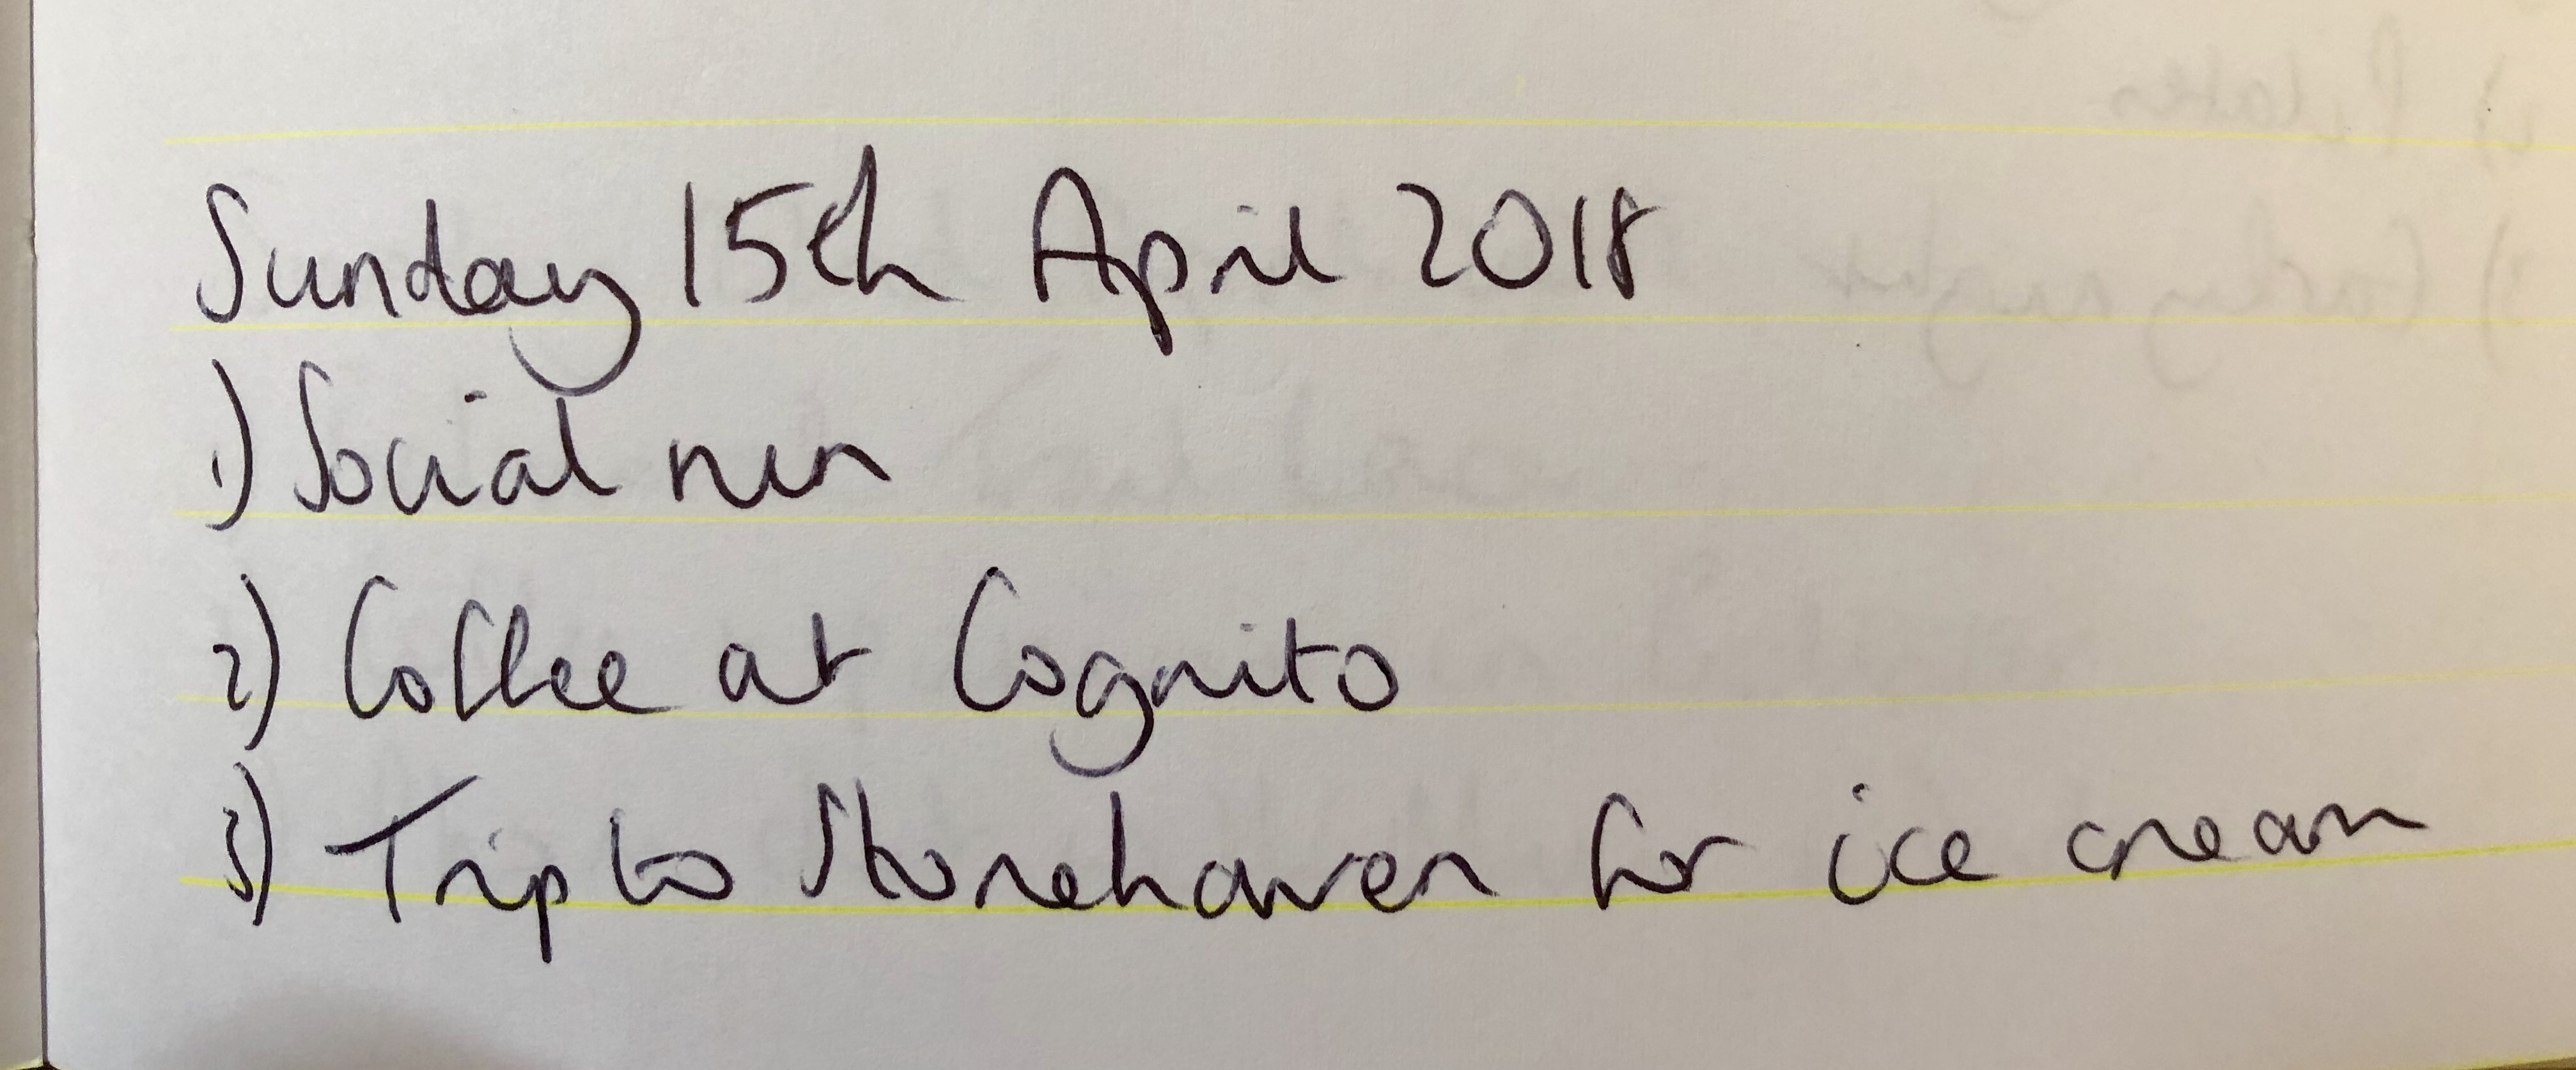 Sunday 15th April 2018
1) Social run
2) Coffee at Cognito
3) Trip to Stonehaven for ice cream